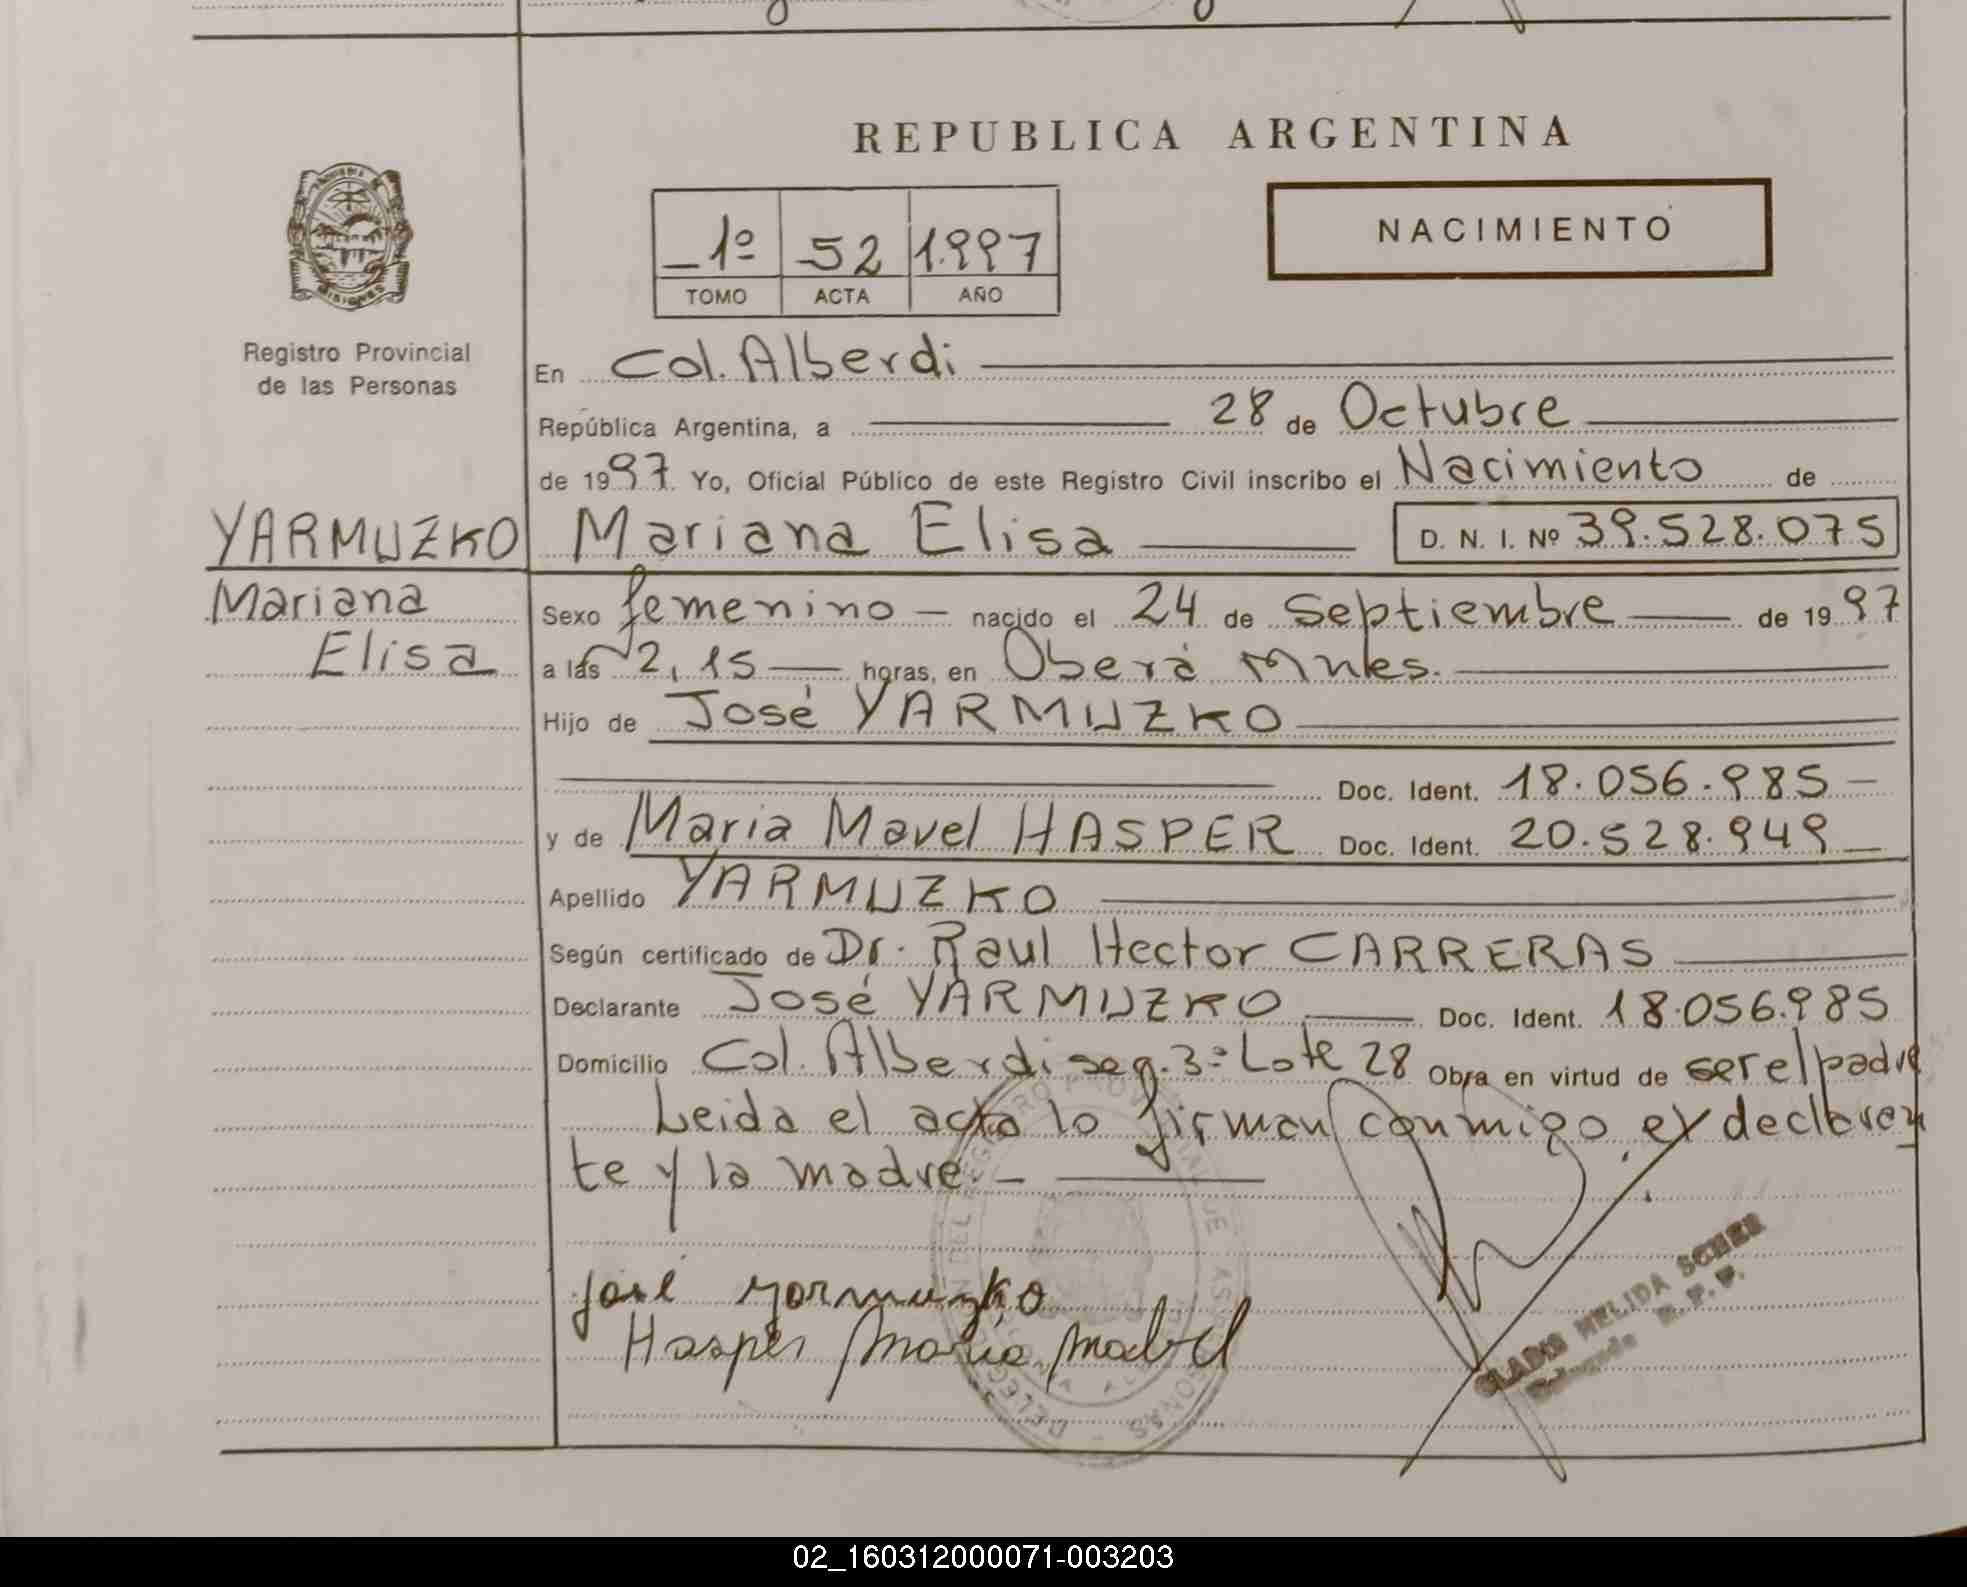 REPUBLICA ARGENTINA
NACIMIENTO
1º 52 1.997
TOMO ACTA AÑO
MISIONES
Registro Provincial
de las Personas
En Col. Alberdi
República Argentina, a 28 de Octubre
de 1997. Yo, Oficial Público de este Registro Civil inscribo el Nacimiento de
YARMUZKO Mariana Elisa D. N. I. Nº 39.528.075
Mariana
Elisa
Sexo femenino - nacido el 24 de Septiembre de 1997
a las 2,15 horas, en Oberá Mnes.
Hijo de José YARMUZKO
Doc. Ident. 18.056.985
y de Maria Mavel HASPER Doc. Ident. 20.528.949
Apellido YARMUZKO
Según certificado de Dr. Raul Hector CARRERAS
Declarante José YARMUZKO Doc. Ident. 18.056.985
Domicilio Col. Alberdi seg. 3ª Lote 28 Obra en virtud de ser el padre
Leida el acta lo firman conmigo el declaran
te y la madre. -
José Yarmuzko
Hasper Maria Mabel
GLADIS NELIDA SCHER
Delegada R. P. P.
02_160312000071-003203